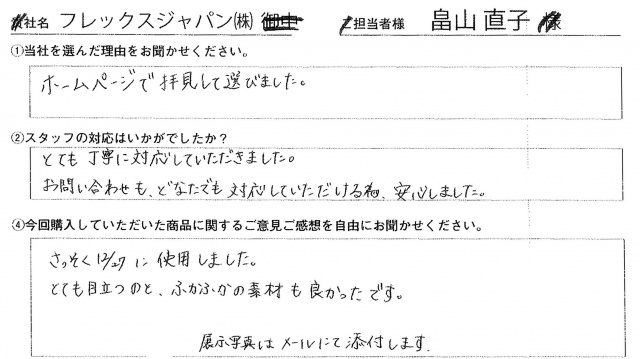 貴社名 フレックスジャパン㈱ 御中 ご担当者様 畠山 直子 様
①当社を選んだ理由をお聞かせください。
ホームページで拝見して選びました。
②スタッフの対応はいかがでしたか？
とても丁寧に対応していただきました。
お問い合わせも、どなたでも対応していただける為、安心しました。
④今回購入していただいた商品に関するご意見ご感想を自由にお聞かせください。
さっそく12/27に使用しました。
とても目立つのと、ふかふかの素材も良かったです。
展示写真はメールにて添付します.